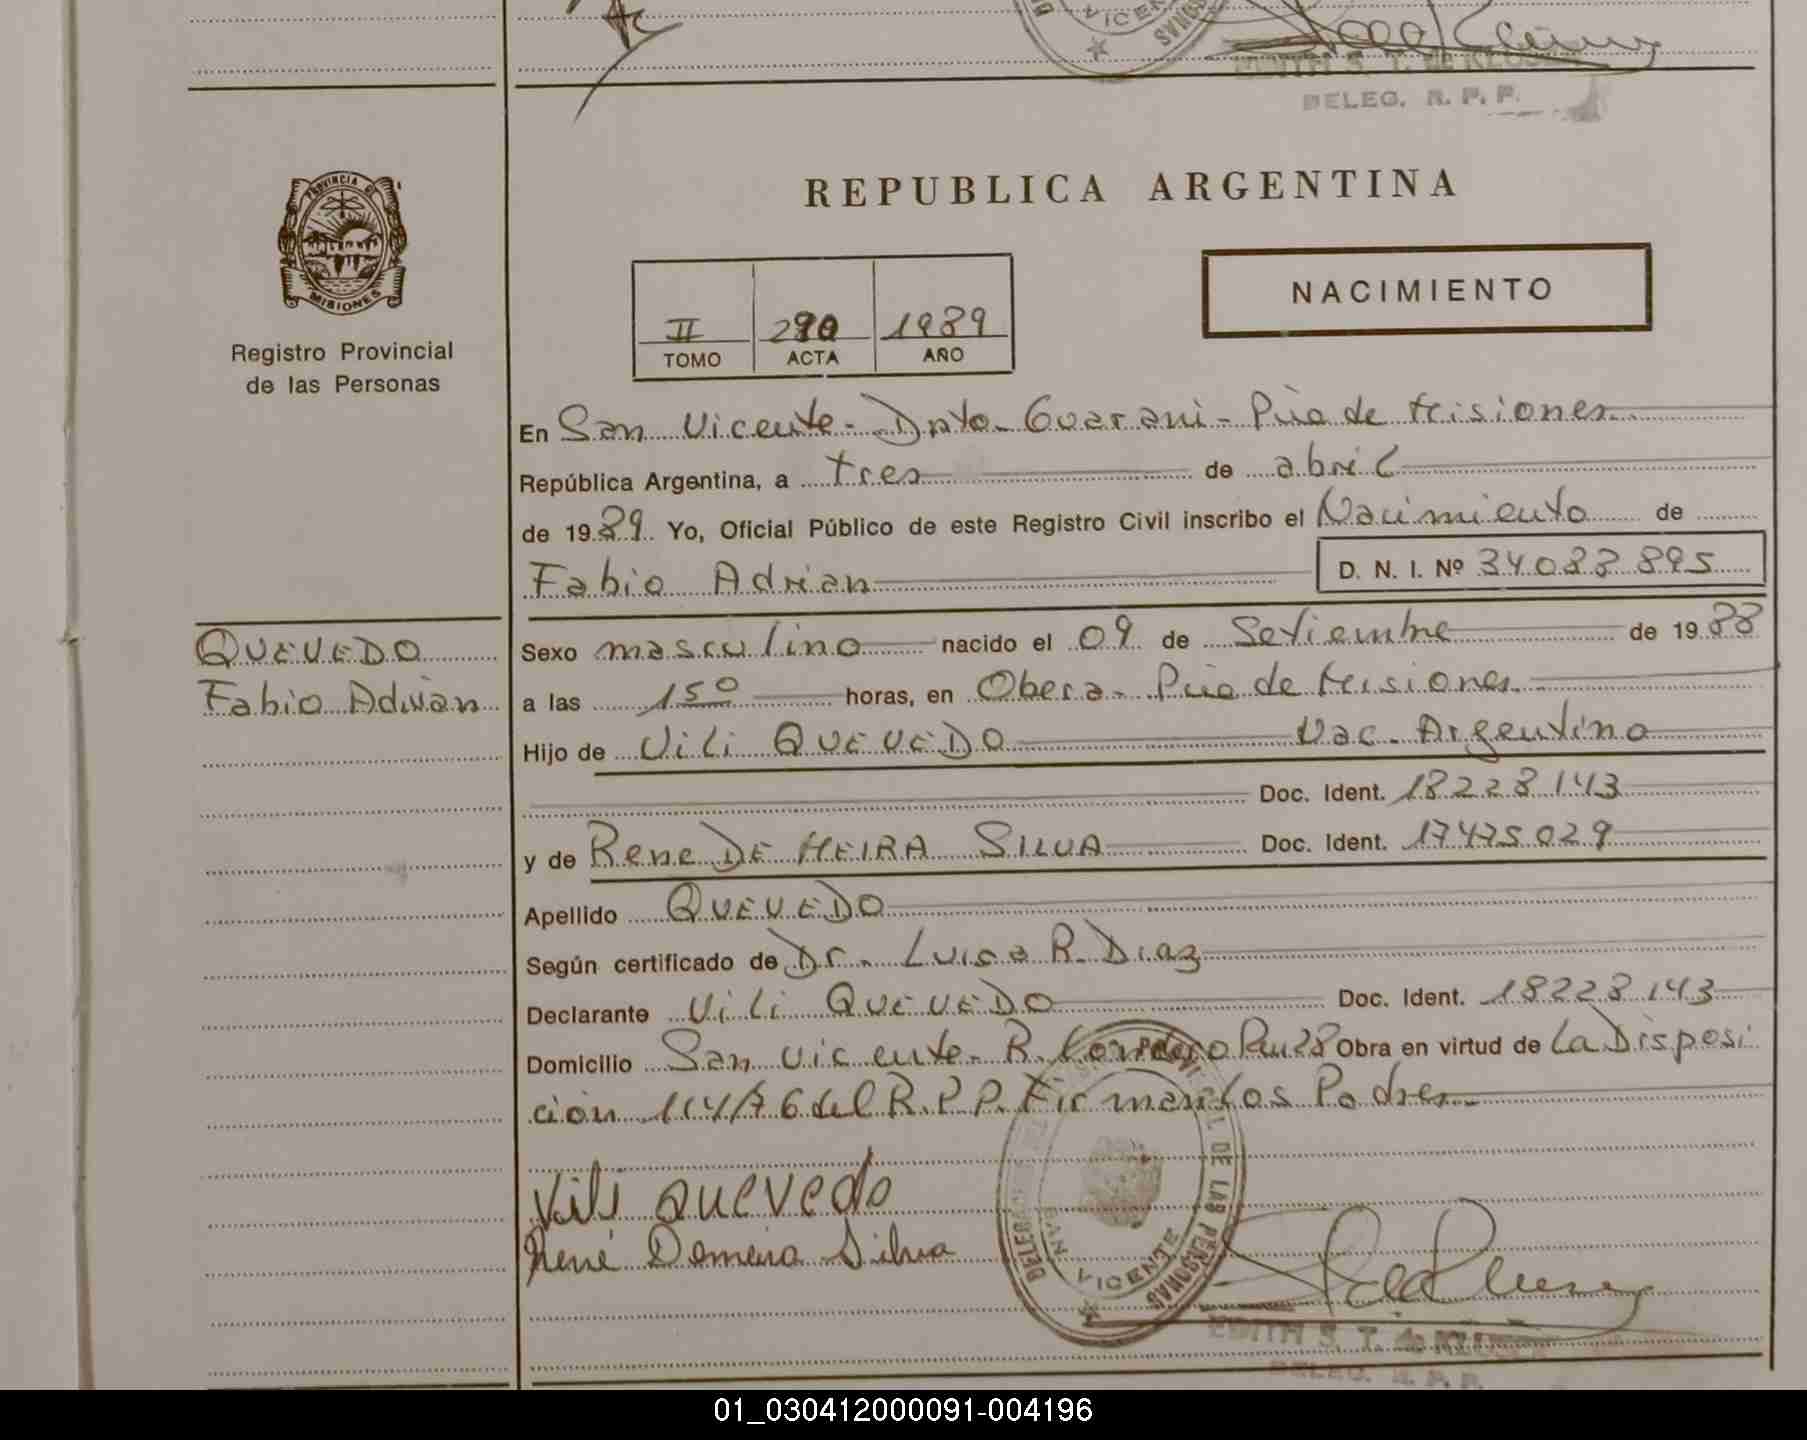 VICEN
EDITH S. T. de KLUSEN
DELEG. R. P. P.
PROVINCIA DE
MISIONES
Registro Provincial
de las Personas
REPUBLICA ARGENTINA
NACIMIENTO
II 290 1989
TOMO ACTA AÑO
En San Vicente - Dpto. Guarani - Pcia de Misiones
República Argentina, a tres de abril
de 1989. Yo, Oficial Público de este Registro Civil inscribo el Nacimiento de
Fabio Adrian D. N. I. Nº 34.088.895
QUEVEDO
Fabio Adrian
Sexo masculino nacido el 09 de Setiembre de 1988
a las 15º horas, en Obera - Pcia de Misiones
Hijo de Vili QUEVEDO Nac. Argentino
Doc. Ident. 18.228.143
y de Rene DE MEIRA SILVA Doc. Ident. 17.475.029
Apellido QUEVEDO
Según certificado de Dr. Luisa R. Diaz
Declarante Vili QUEVEDO Doc. Ident. 18.228.143
Domicilio San Vicente - R. Obra en virtud de La Disposi
ción 114/76 del R.P.P. Firman Los Padres
Vili Quevedo
René Demeira Silva
DE LAS PERSONAS
SAN VICENTE
EDITH S. T. de KLUSEN
DELEG. R. P. P.
01_030412000091-004196